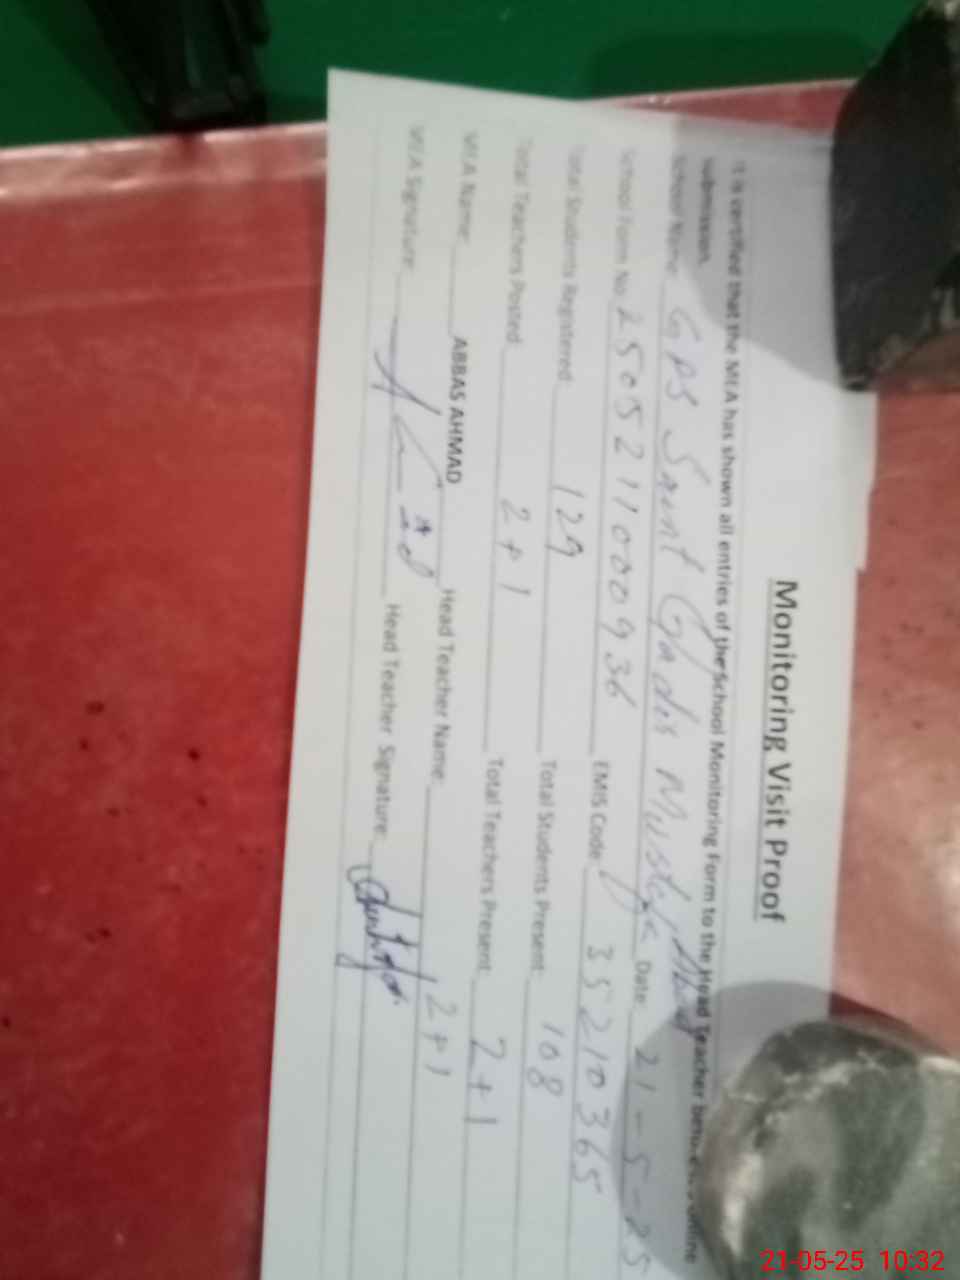 Monitoring Visit Proof
It is certified that the MEA has shown all entries of the School Monitoring Form to the Head Teacher before online
submission.
School Name: GPS Saint Gladis Mustafa Abad Date: 21-5-25
School Form No 2505211000936 EMIS Code 35210365
Total Students Registered: 129 Total Students Present: 108
Total Teachers Posted 2+1 Total Teachers Present 2+1
MEA Name: ABBAS AHMAD Head Teacher Name: 2+1
MEA Signature: Head Teacher Signature:
21-05-25 10:32